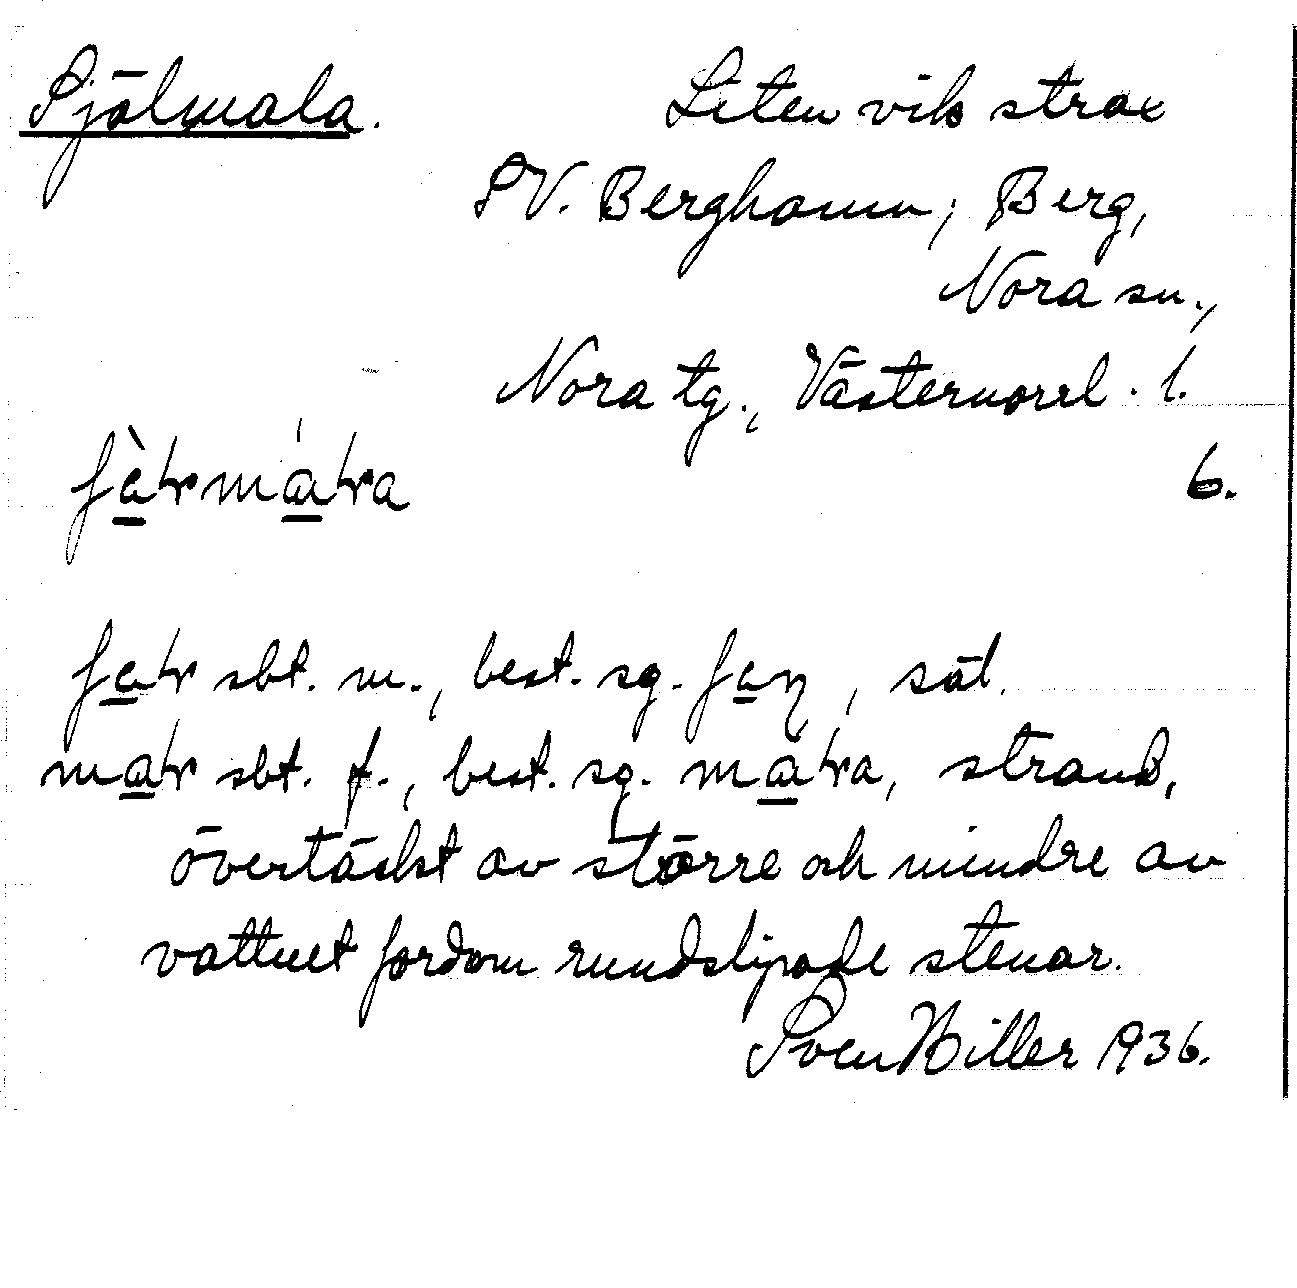 Själmala.
Liten vik strax
SV. Berghamn, Berg,
Nora sn.,
Nora tg., Västernorrl. l.
6.
sbt. m., best. sg. , säl.
sbt. f., best. sg. , strand,
övertäckt av större och mindre av
vattnet fordom rundslipade stenar.
Sven Hiller 1936.